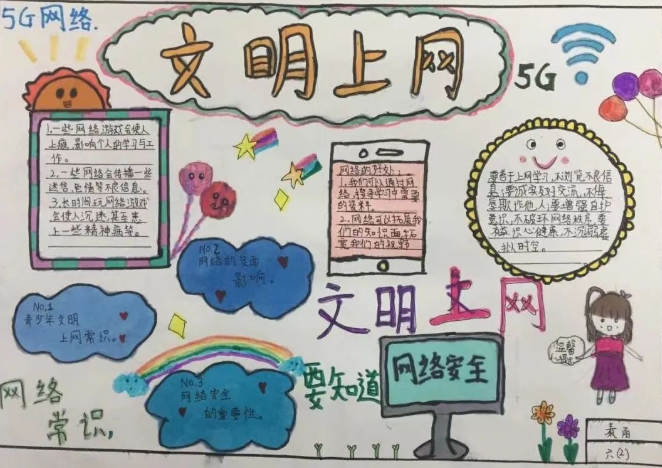 5G网络.
文明上网
5G
1.一些网络游戏会使人
上瘾,影响个人的学习与工
作。
2.一些网络会传播一些
迷信,色情等不良信息。
3.长时间玩网络游戏
会使人沉迷,甚至患
上一些精神病等。
网络的好处:
1.我们可以通过网
络,搜寻学习中需要
的资料
2.网络可以拓展我
们的知识面拓
宽我们的视野
要善于上网学习,不浏览不良信
息;要诚实友好交流,不侮
辱欺诈他人;要增强自护
意识,不破坏网络秩序,要
有益身心健康,不沉溺虚
拟时空。
No.2
网络的负面
影响。
No.1
青少年文明
上网常识。
文明上网
No.3
网络安全
的重要性。
要知道
网络安全
温馨
网络
常识,
六(2)